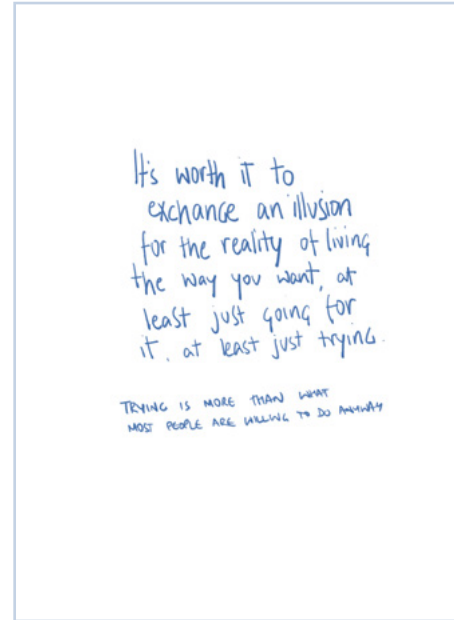 It's worth it to
exchange an illusion
for the reality of living
the way you want, at
least just going for
it, at least just trying.
TRYING IS MORE THAN WHAT
MOST PEOPLE ARE WILLING TO DO ANYWAY